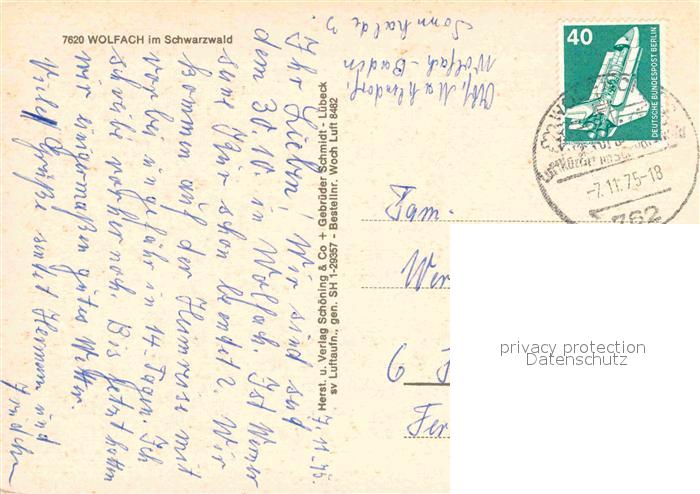 7620 WOLFACH im Schwarzwald
7.11.75.
Ihr Lieben! Wir sind seit
dem 30.10. in Wolfach. Ist Werner
seine Kur schon beendet? Wir
kommen auf der Heimreise mit
vorbei, ungefähr in 14 Tagen. Ich
schreibe vorher noch. Bis jetzt hatten
wir einigermaßen gutes Wetter.
Viele Grüße sendet Hermann und
Herst. u. Verlag Schöning & Co + Gebrüder Schmidt - Lübeck
sv Luftaufn., gen. SH 1-29357 - Bestellnr. Woch Luft 8482
Abs.
Wolfach-Baden
Sonnhalde 3
40
DEUTSCHE BUNDESPOST BERLIN
-7.11.75-18
762
Fam.
Wer
6
Fer
privacy protection
Datenschutz